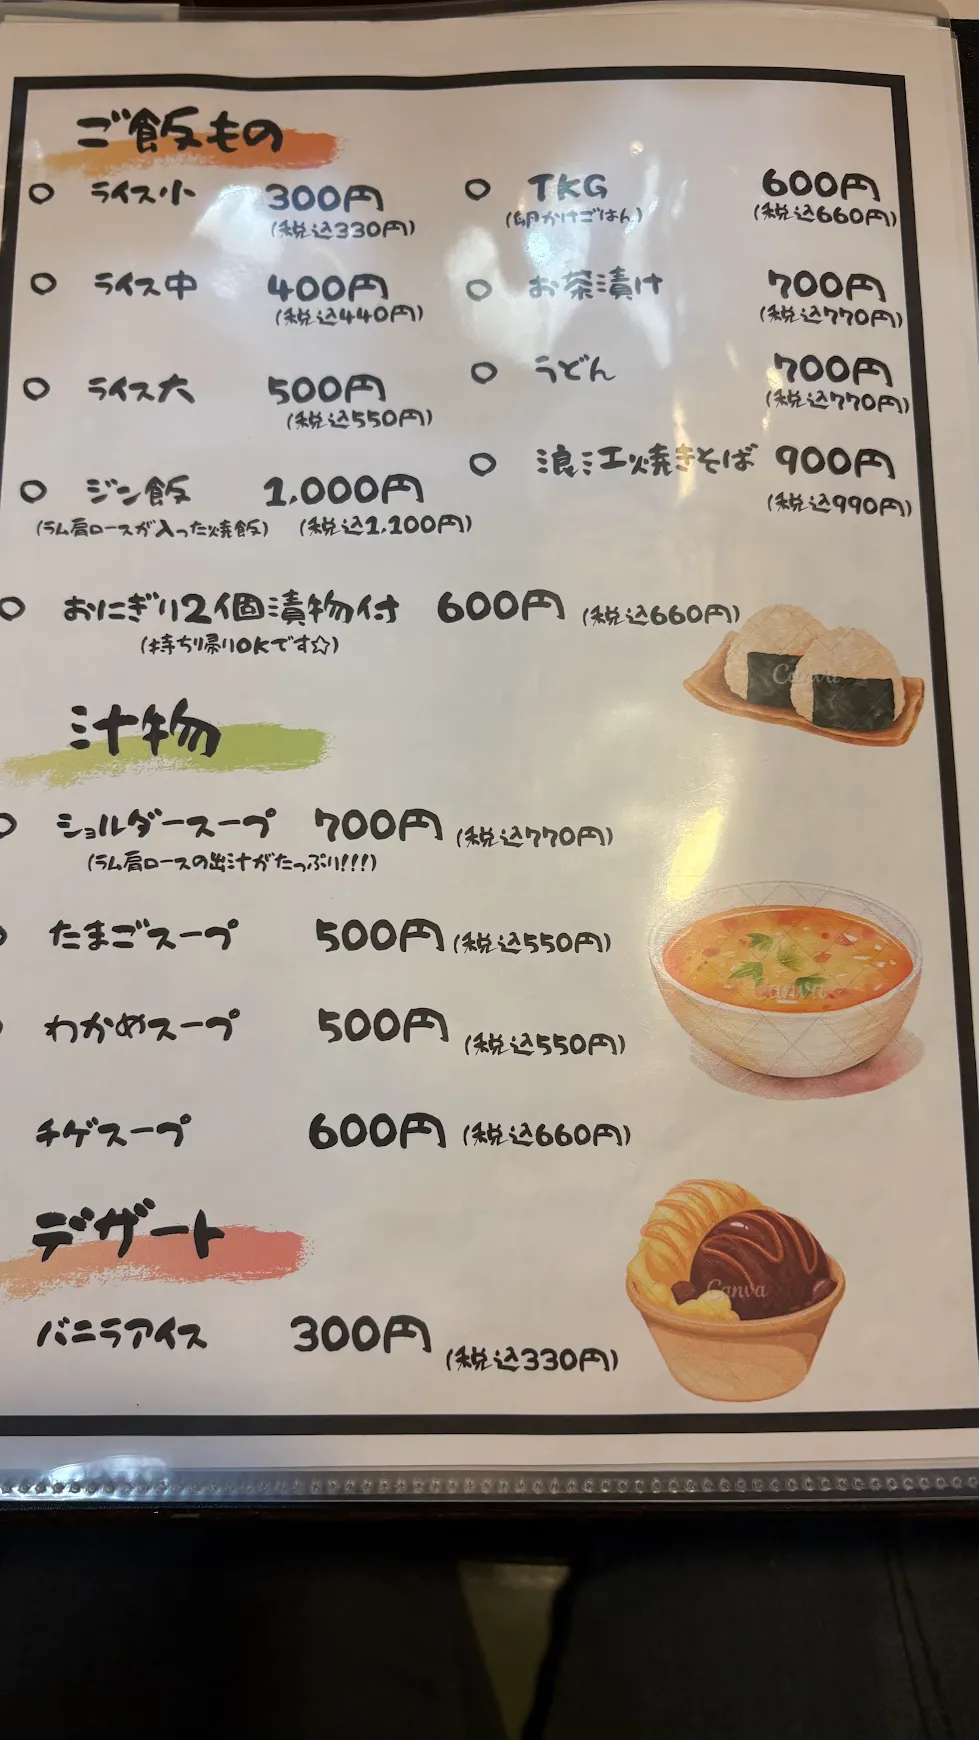 ご飯もの
○ ライス小 300円
(税込330円)
○ ライス中 400円
(税込440円)
○ ライス大 500円
(税込550円)
○ ジン飯 1,000円
(ラム肩ロースが入った焼飯) (税込1,100円)
○ TKG 600円
(卵かけごはん) (税込660円)
○ お茶漬け 700円
(税込770円)
○ うどん 700円
(税込770円)
○ 浪江焼きそば 900円
(税込990円)
○ おにぎり2個漬物付 600円 (税込660円)
(持ち帰りOKです☆)
Canva
汁物
○ ショルダースープ 700円 (税込770円)
(ラム肩ロースの出汁がたっぷり!!!)
○ たまごスープ 500円 (税込550円)
○ わかめスープ 500円 (税込550円)
Canva
チゲスープ 600円 (税込660円)
デザート
バニラアイス 300円 (税込330円)
Canva